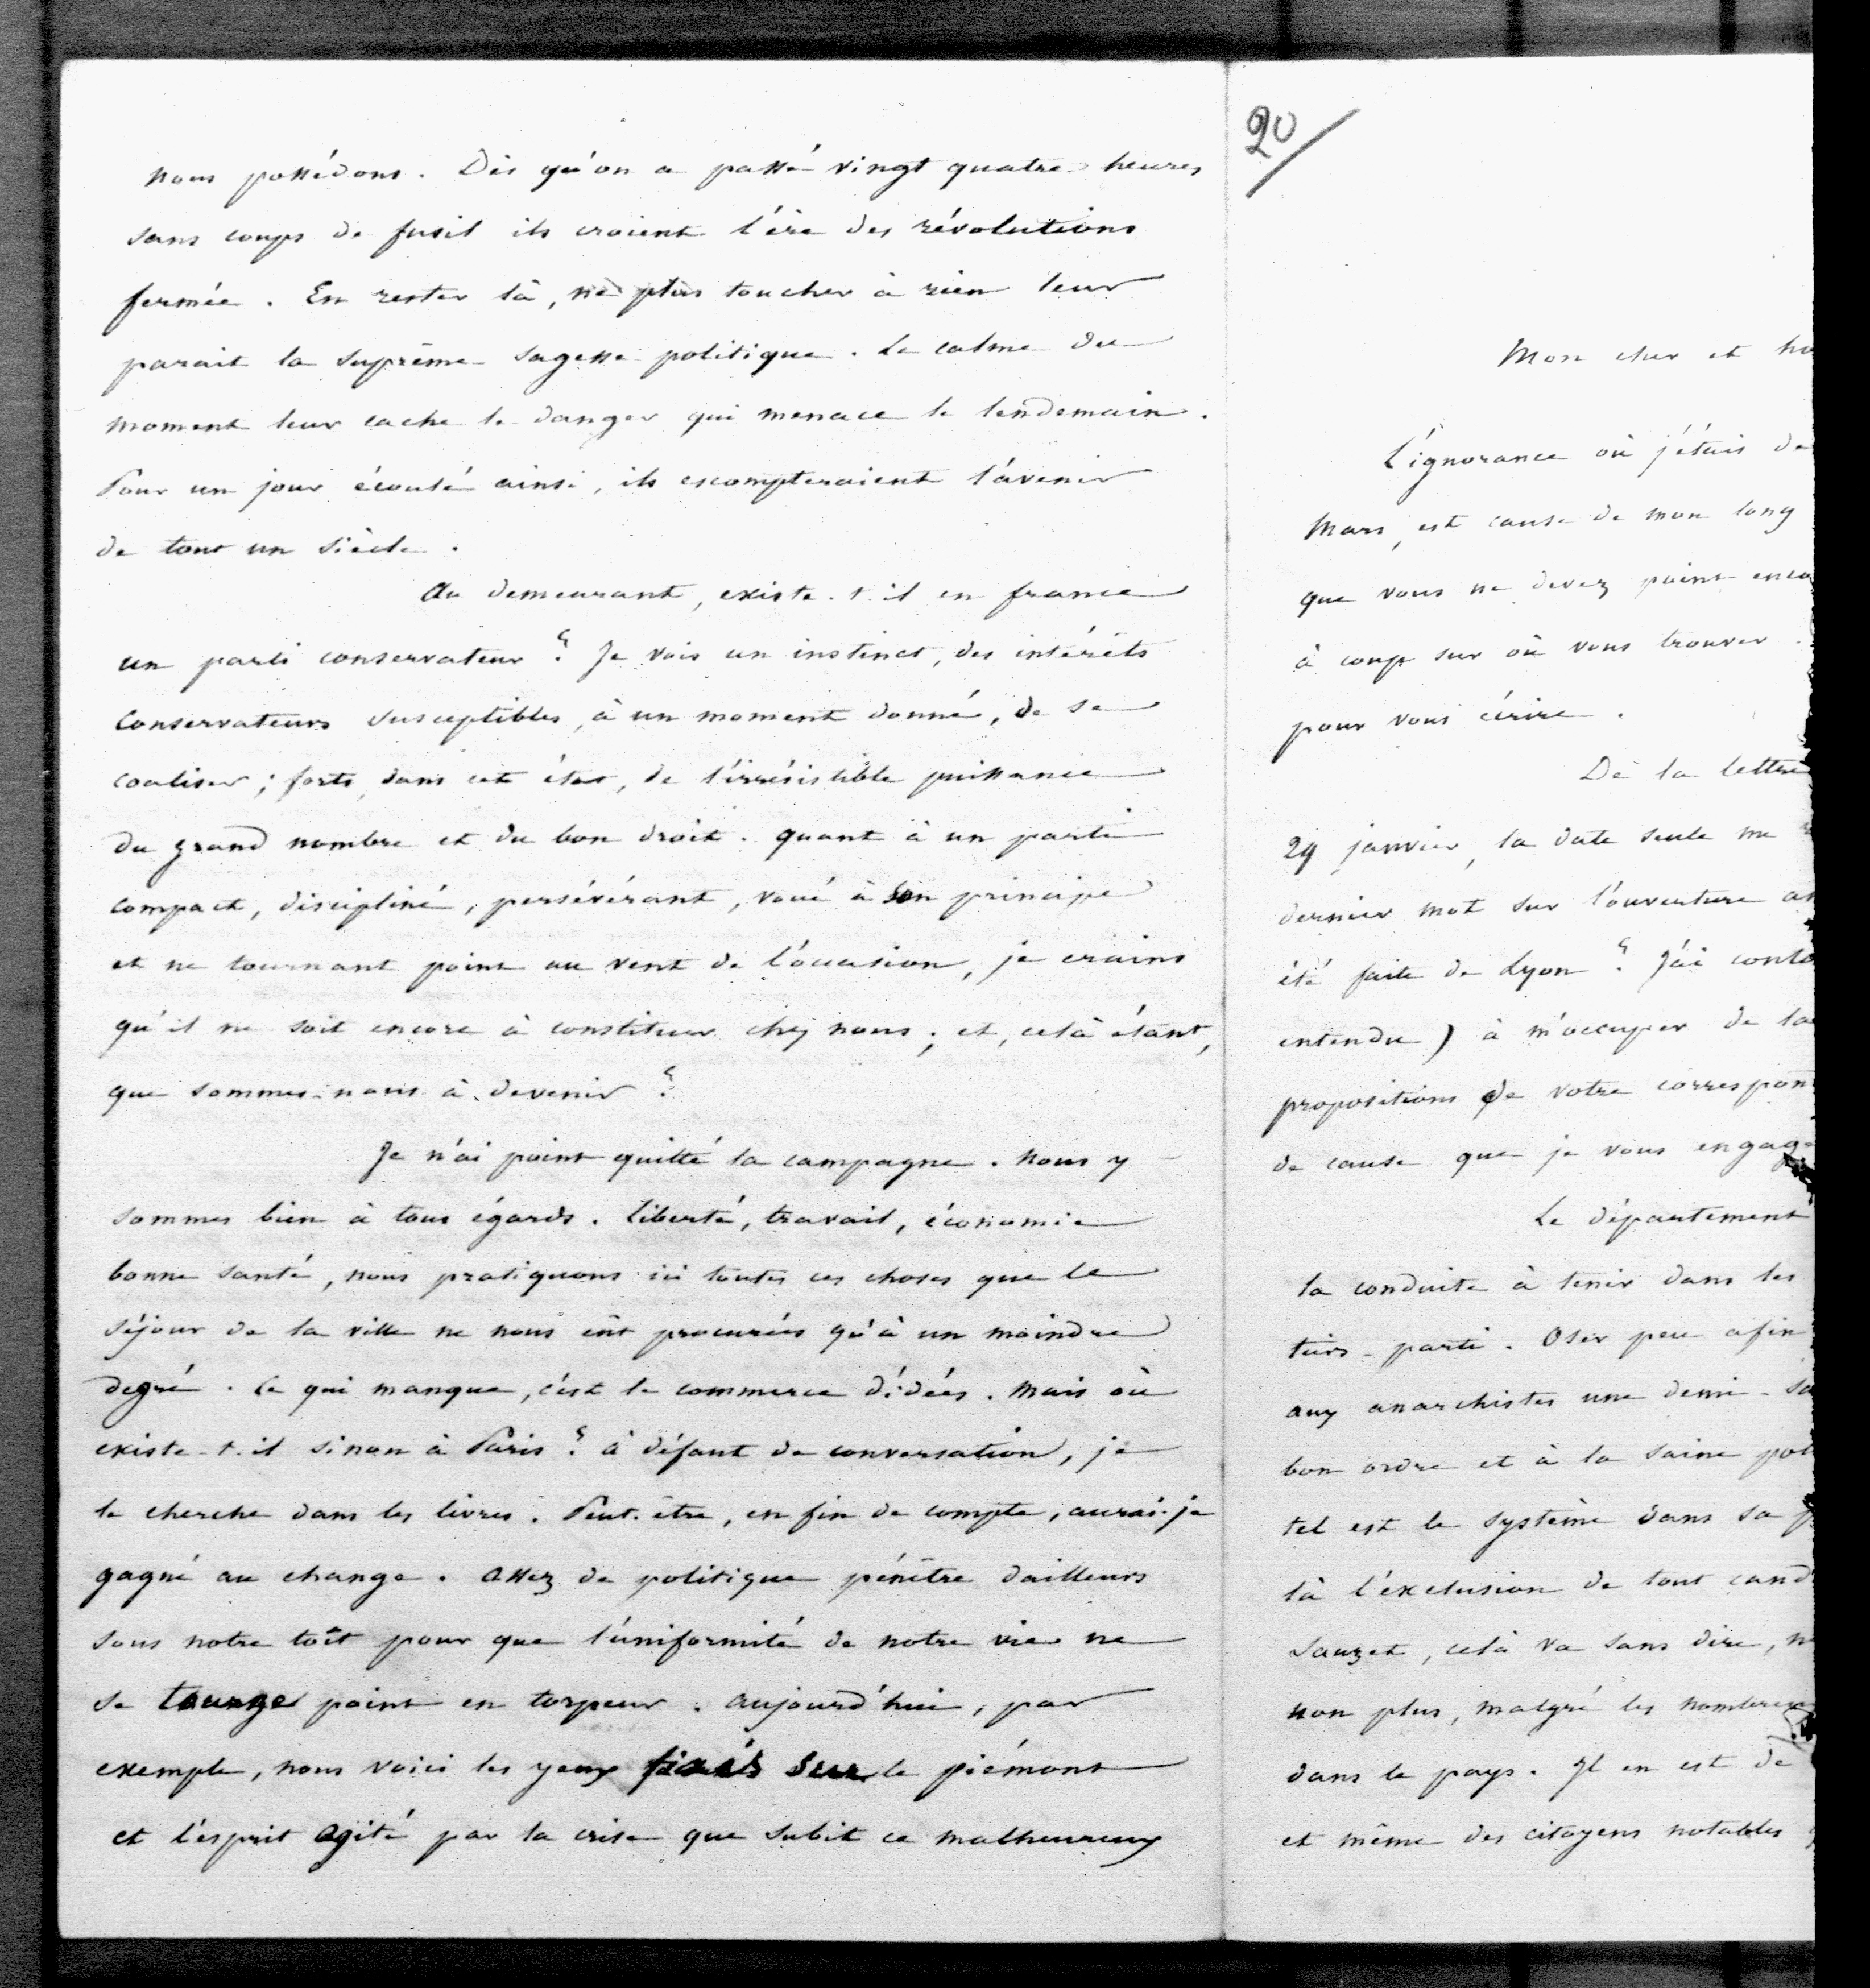 nous possédons. Dès qu'on a passé vingt quatre heures
sans coups de fusil ils croient l'ère des révolutions
fermée. En rester là, ne plus toucher à rien leur
parait la suprême sagesse politique. Le calme du
moment leur cache le danger qui menace le lendemain.
Pour un jour écoulé ainsi, ils escompteraient l'avenir
de tout un siècle.
Au demeurant, existe-t-il en france
un parti conservateur ? Je vois un instinct, des intérêts
conservateurs susceptibles, à un moment donné, de se
coaliser ; forts, dans cet état, de l'irrésistible puissance
du grand nombre et du bon droit. quant à un parti
compact, discipliné, persévérant, voué à son principe
et ne tournant point au vent de l'occasion, je crains
qu'il ne soit encore à constituer chez nous ; et, celà étant,
que sommes-nous à devenir ?
Je n'ai point quitté la campagne. Nous y
sommes bien à tous égards. Liberté, travail, économie
bonne santé, nous pratiquons ici toutes ces choses que le
séjour de la ville ne nous eût procurées qu'à un moindre
degré. Ce qui manque, c'est le commerce d'idées. Mais où
existe-t-il sinon à Paris ? à défaut de conversation, je
le cherche dans les livres. Peut-être, en fin de compte, aurai-je
gagné au change. Assez de politique pénètre dailleurs
sous notre toît pour que l'uniformité de notre vie ne
se tourne point en torpeur. Aujourd'hui, par
exemple, nous voici les yeux fixés sur le piémont
et l'esprit agité par la crise que subit ce malheureux
20
Mon cher et ho
L'ignorance où j'étais de
Mars, est cause de mon long
que vous ne devez point enco
à coup sur où vous trouver.
pour vous écrire.
De la lettre
29 janvier, la date seule me
dernier mot sur l'ouverture
été faite de Lyon ? J'ai
entendu) à m'occuper de la
propositions de votre correspon
de cause que je vous engage
Le département
la conduite à tenir dans les
tiers-parti. Oser peu afin
aux anarchistes une demi-sa
bon ordre et à la saine pol
tel est le système dans sa
là l'exclusion de tout cand
Sauzet, celà va sans dire,
non plus, malgré les nombreux
dans le pays. Il en est de
et même des citoyens notables